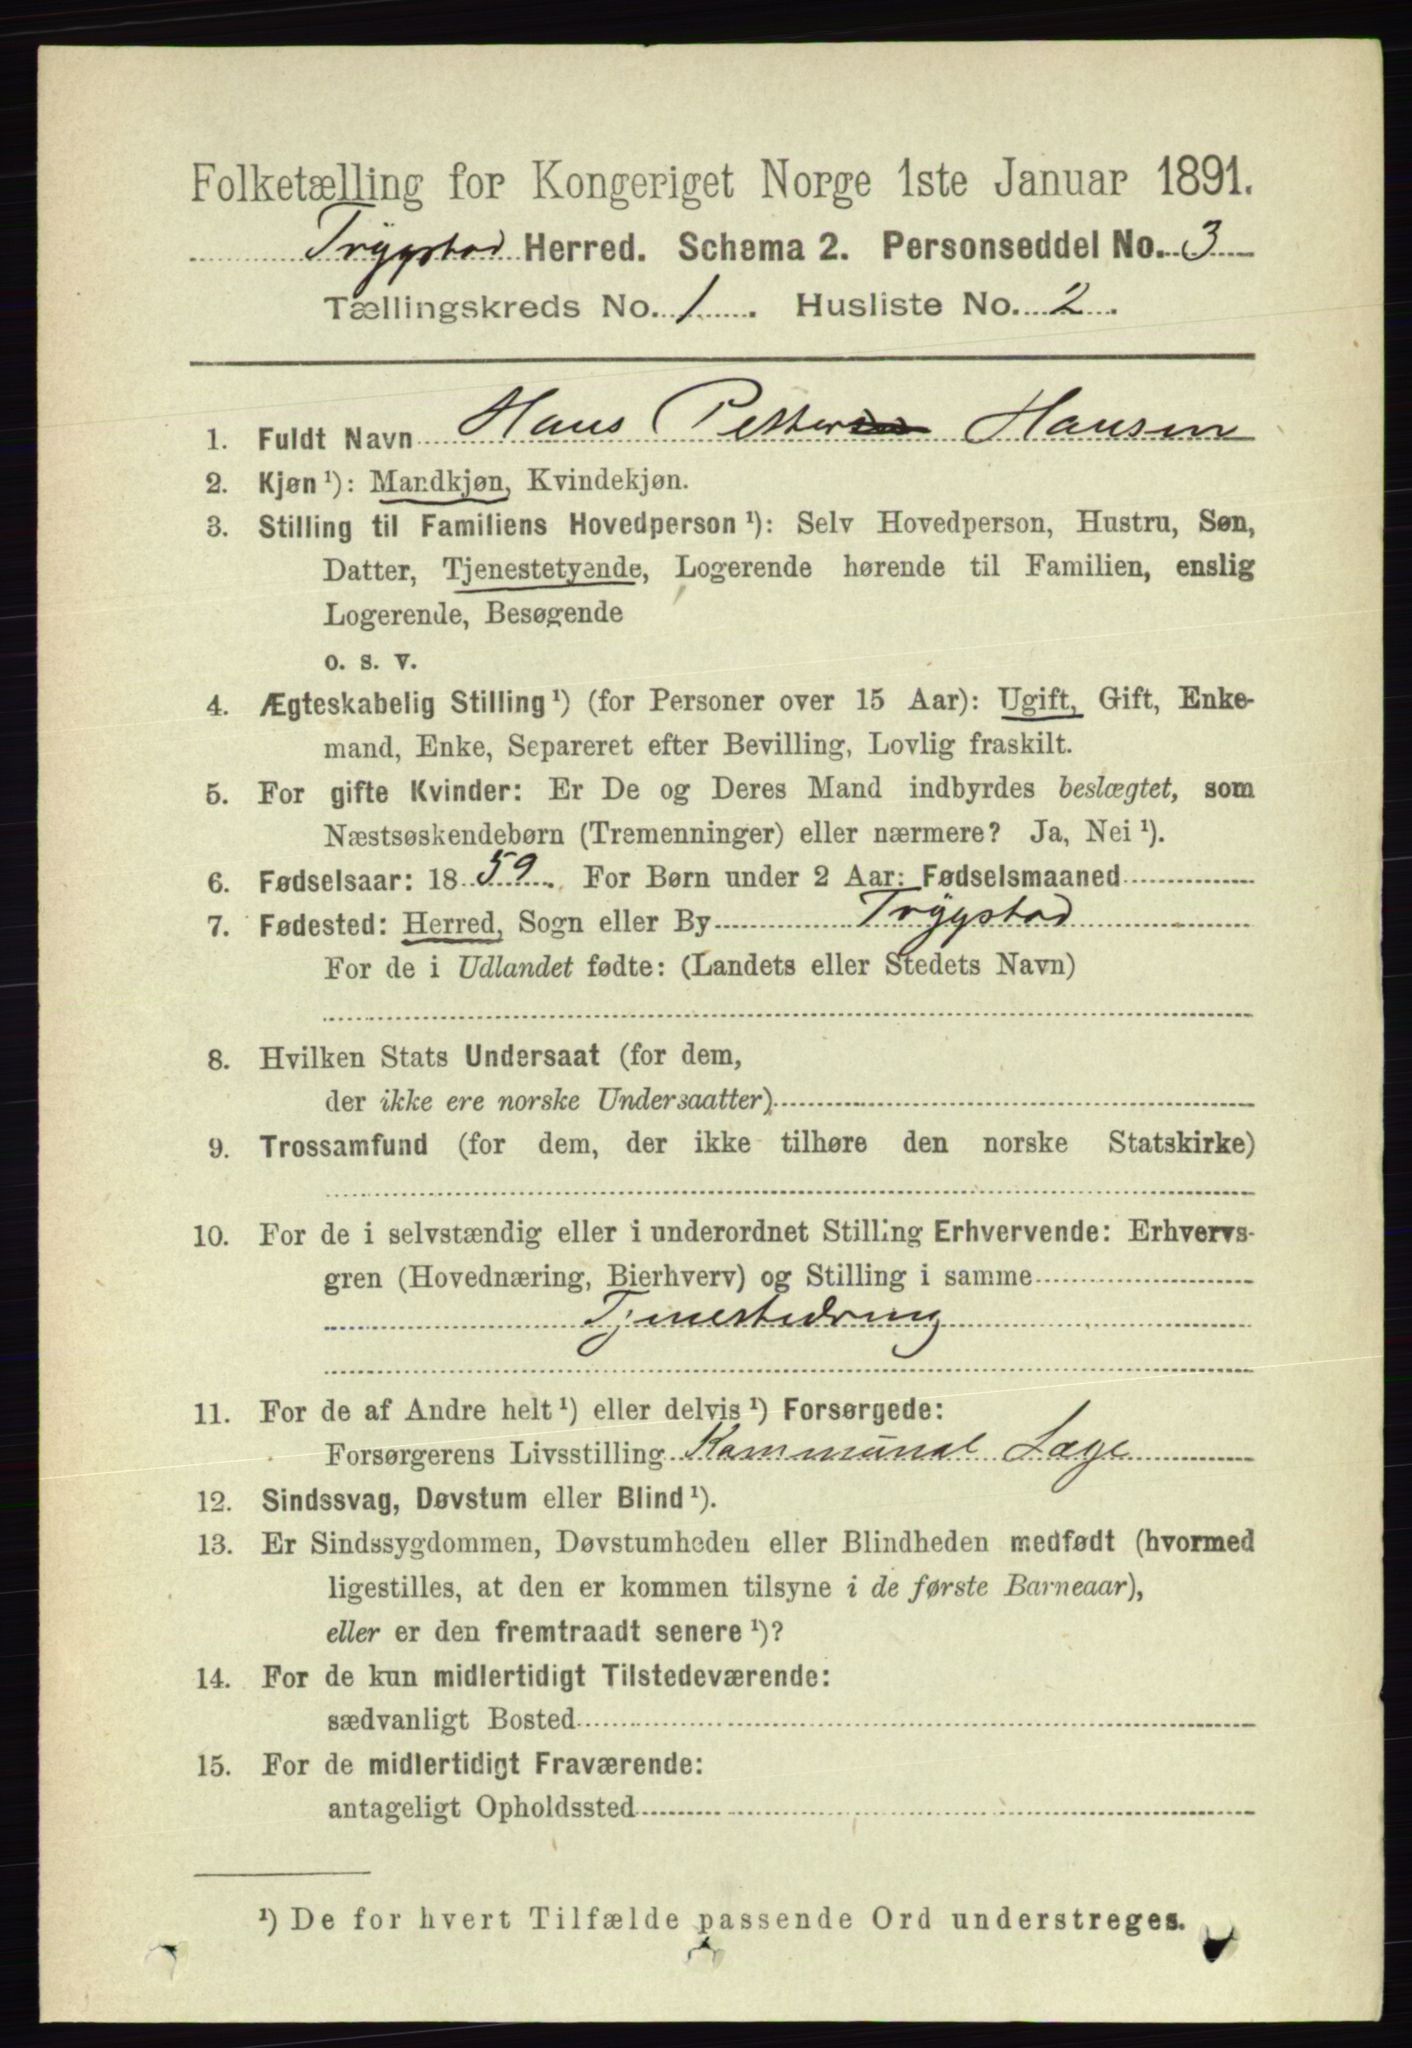 Folketælling for Kongeriget Norge 1ste Januar 1891.
Trygstad Herred. Schema 2. Personseddel No. 3
Tællingskreds No. 1. Husliste No. 2.
1. Fuldt Navn Hans Petter Hansen
2. Kjøn ¹): Mandkjøn, Kvindekjøn.
3. Stilling til Familiens Hovedperson ¹): Selv Hovedperson, Hustru, Søn,
Datter, Tjenestetyende, Logerende hørende til Familien, enslig
Logerende, Besøgende
o. s. v.
4. Ægteskabelig Stilling ¹) (for Personer over 15 Aar): Ugift, Gift, Enke-
mand, Enke, Separeret efter Bevilling, Lovlig fraskilt.
5. For gifte Kvinder: Er De og Deres Mand indbyrdes beslægtet, som
Næstsøskendebørn (Tremenninger) eller nærmere? Ja, Nei ¹).
6. Fødselsaar: 1859. For Børn under 2 Aar: Fødselsmaaned
7. Fødested: Herred, Sogn eller By Trygstad
For de i Udlandet fødte: (Landets eller Stedets Navn)
8. Hvilken Stats Undersaat (for dem,
der ikke ere norske Undersaatter)
9. Trossamfund (for dem, der ikke tilhøre den norske Statskirke)
10. For de i selvstændig eller i underordnet Stilling Erhvervende: Erhvervs-
gren (Hovednæring, Bierhverv) og Stilling i samme
Tjenestedreng
11. For de af Andre helt ¹) eller delvis ¹) Forsørgede:
Forsørgerens Livsstilling Kommunal Læge
12. Sindssvag, Døvstum eller Blind ¹).
13. Er Sindssygdommen, Døvstumheden eller Blindheden medfødt (hvormed
ligestilles, at den er kommen tilsyne i de første Barneaar),
eller er den fremtraadt senere ¹)?
14. For de kun midlertidigt Tilstedeværende:
sædvanligt Bosted
15. For de midlertidigt Fraværende:
antageligt Opholdssted
¹) De for hvert Tilfælde passende Ord understreges.